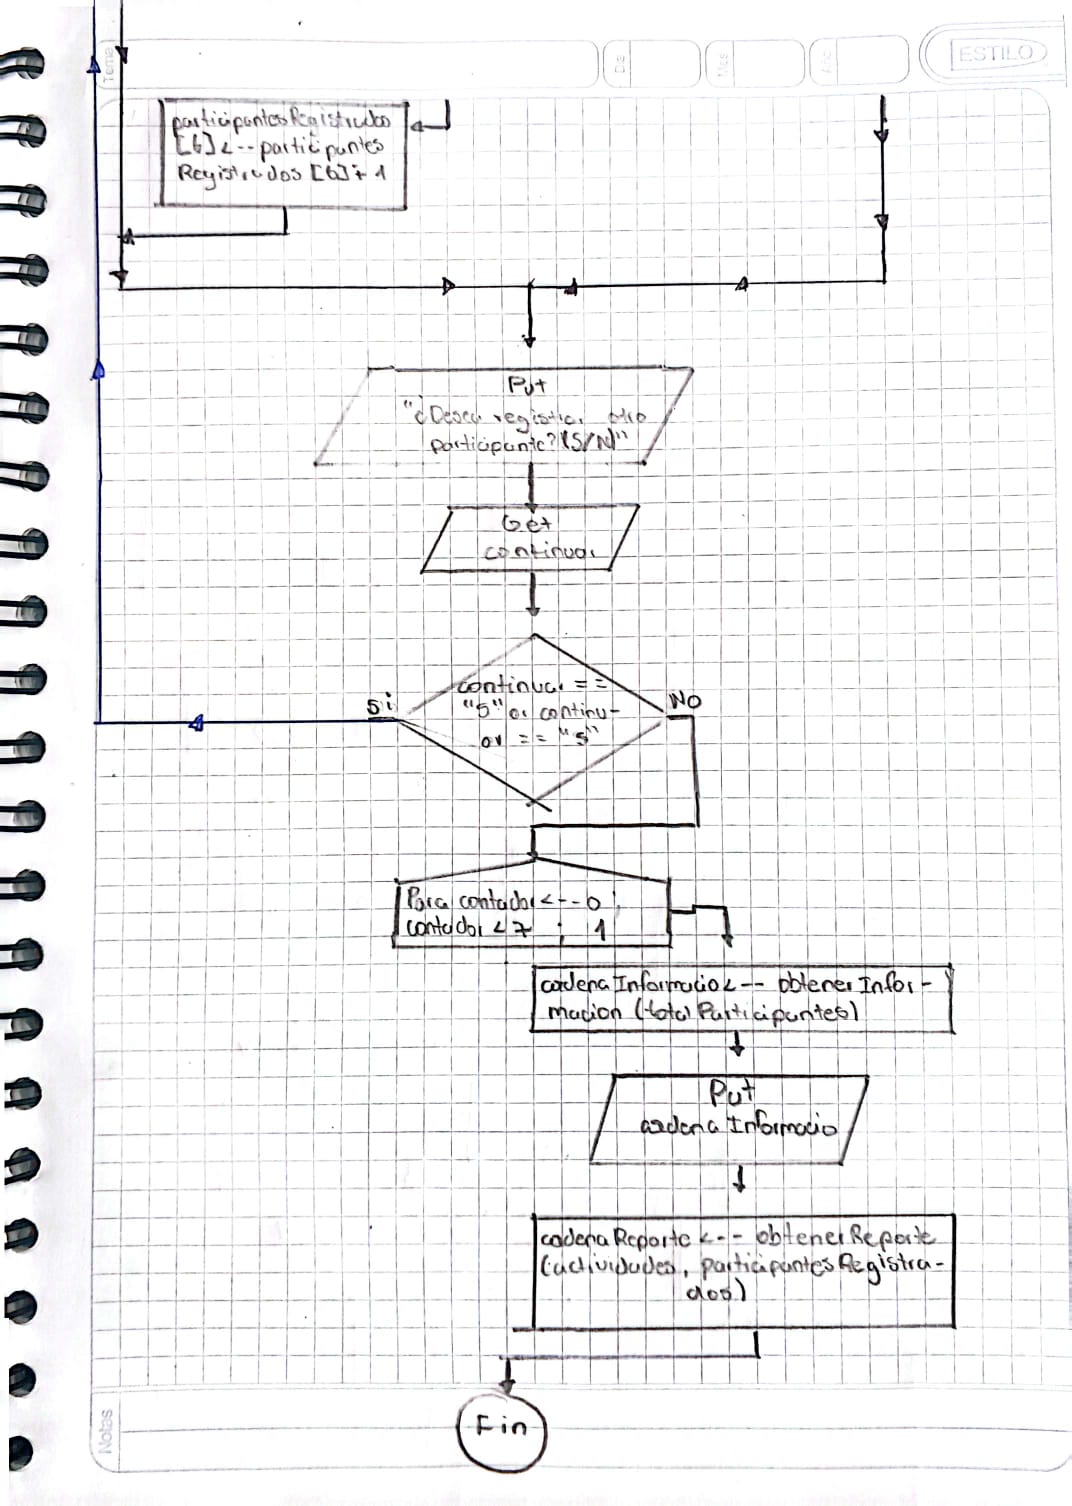 Tema
Dia
Mes
Año
ESTILO
participantesRegistrados
[6] <-- participantes
Registrados [6] + 1
Put
"¿Desea registrar otro
participante? (S/N)"
Get
continuar
continuar ==
"S" or continu-
ar == "s"
Si
No
Para contador <-- 0 ;
contador < 7 ; 1
cadenaInformacio <-- obtenerInfor-
macion (totalParticipantes)
Put
cadenaInformacio
cadenaReporte <-- obtenerReporte
(actividades, participantesRegistra-
dos)
Fin
Notas